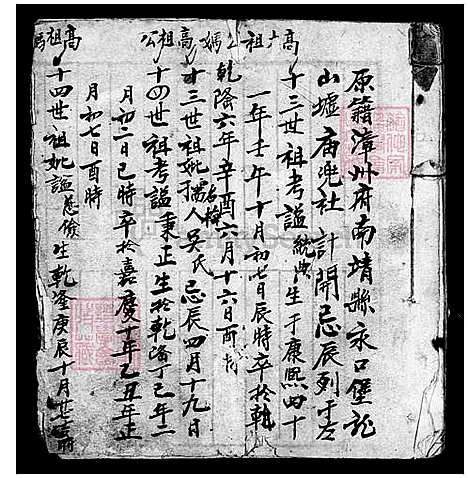 原籍漳州府南靖縣永口堡龍
山墟廟兜社 計開忌辰列于左
高大祖公
十三世祖考謚統典生于康熙四十
一年壬午十月初七日辰時卒於乾
隆六年辛酉六月十六日酉時
高祖媽
十三世祖妣孺人吳氏忌辰四月十九日
高祖公
十四世祖考謚秉正生於乾隆丁巳年二
月初二日巳時卒於嘉慶十年乙丑年正
月初七日酉時
高祖媽
十四世祖妣謚慈儉生乾隆庚辰十月廿